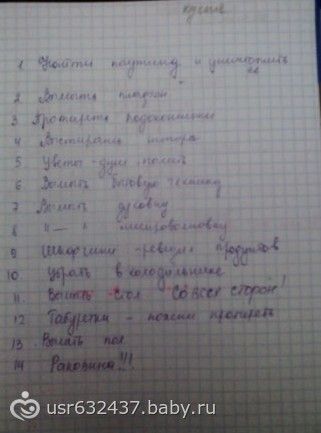 кухня
1 Найти паутину и уничтожить
её
2 Вымыть плафон
3 Протереть подоконники
4 Выстирать штора
5 Цветы - душ, полить
6 Вымыть бытовую технику
7 Вымыть духовку
8 " — " микроволновку
9 Шкафчики - ревизия продуктов
10 Убрать в холодильнике
11 Вымыть стол со всех сторон!
12 Табуретки - ножки протереть
13 Мыть пол
14 Раковина!!!
usr632437.baby.ru